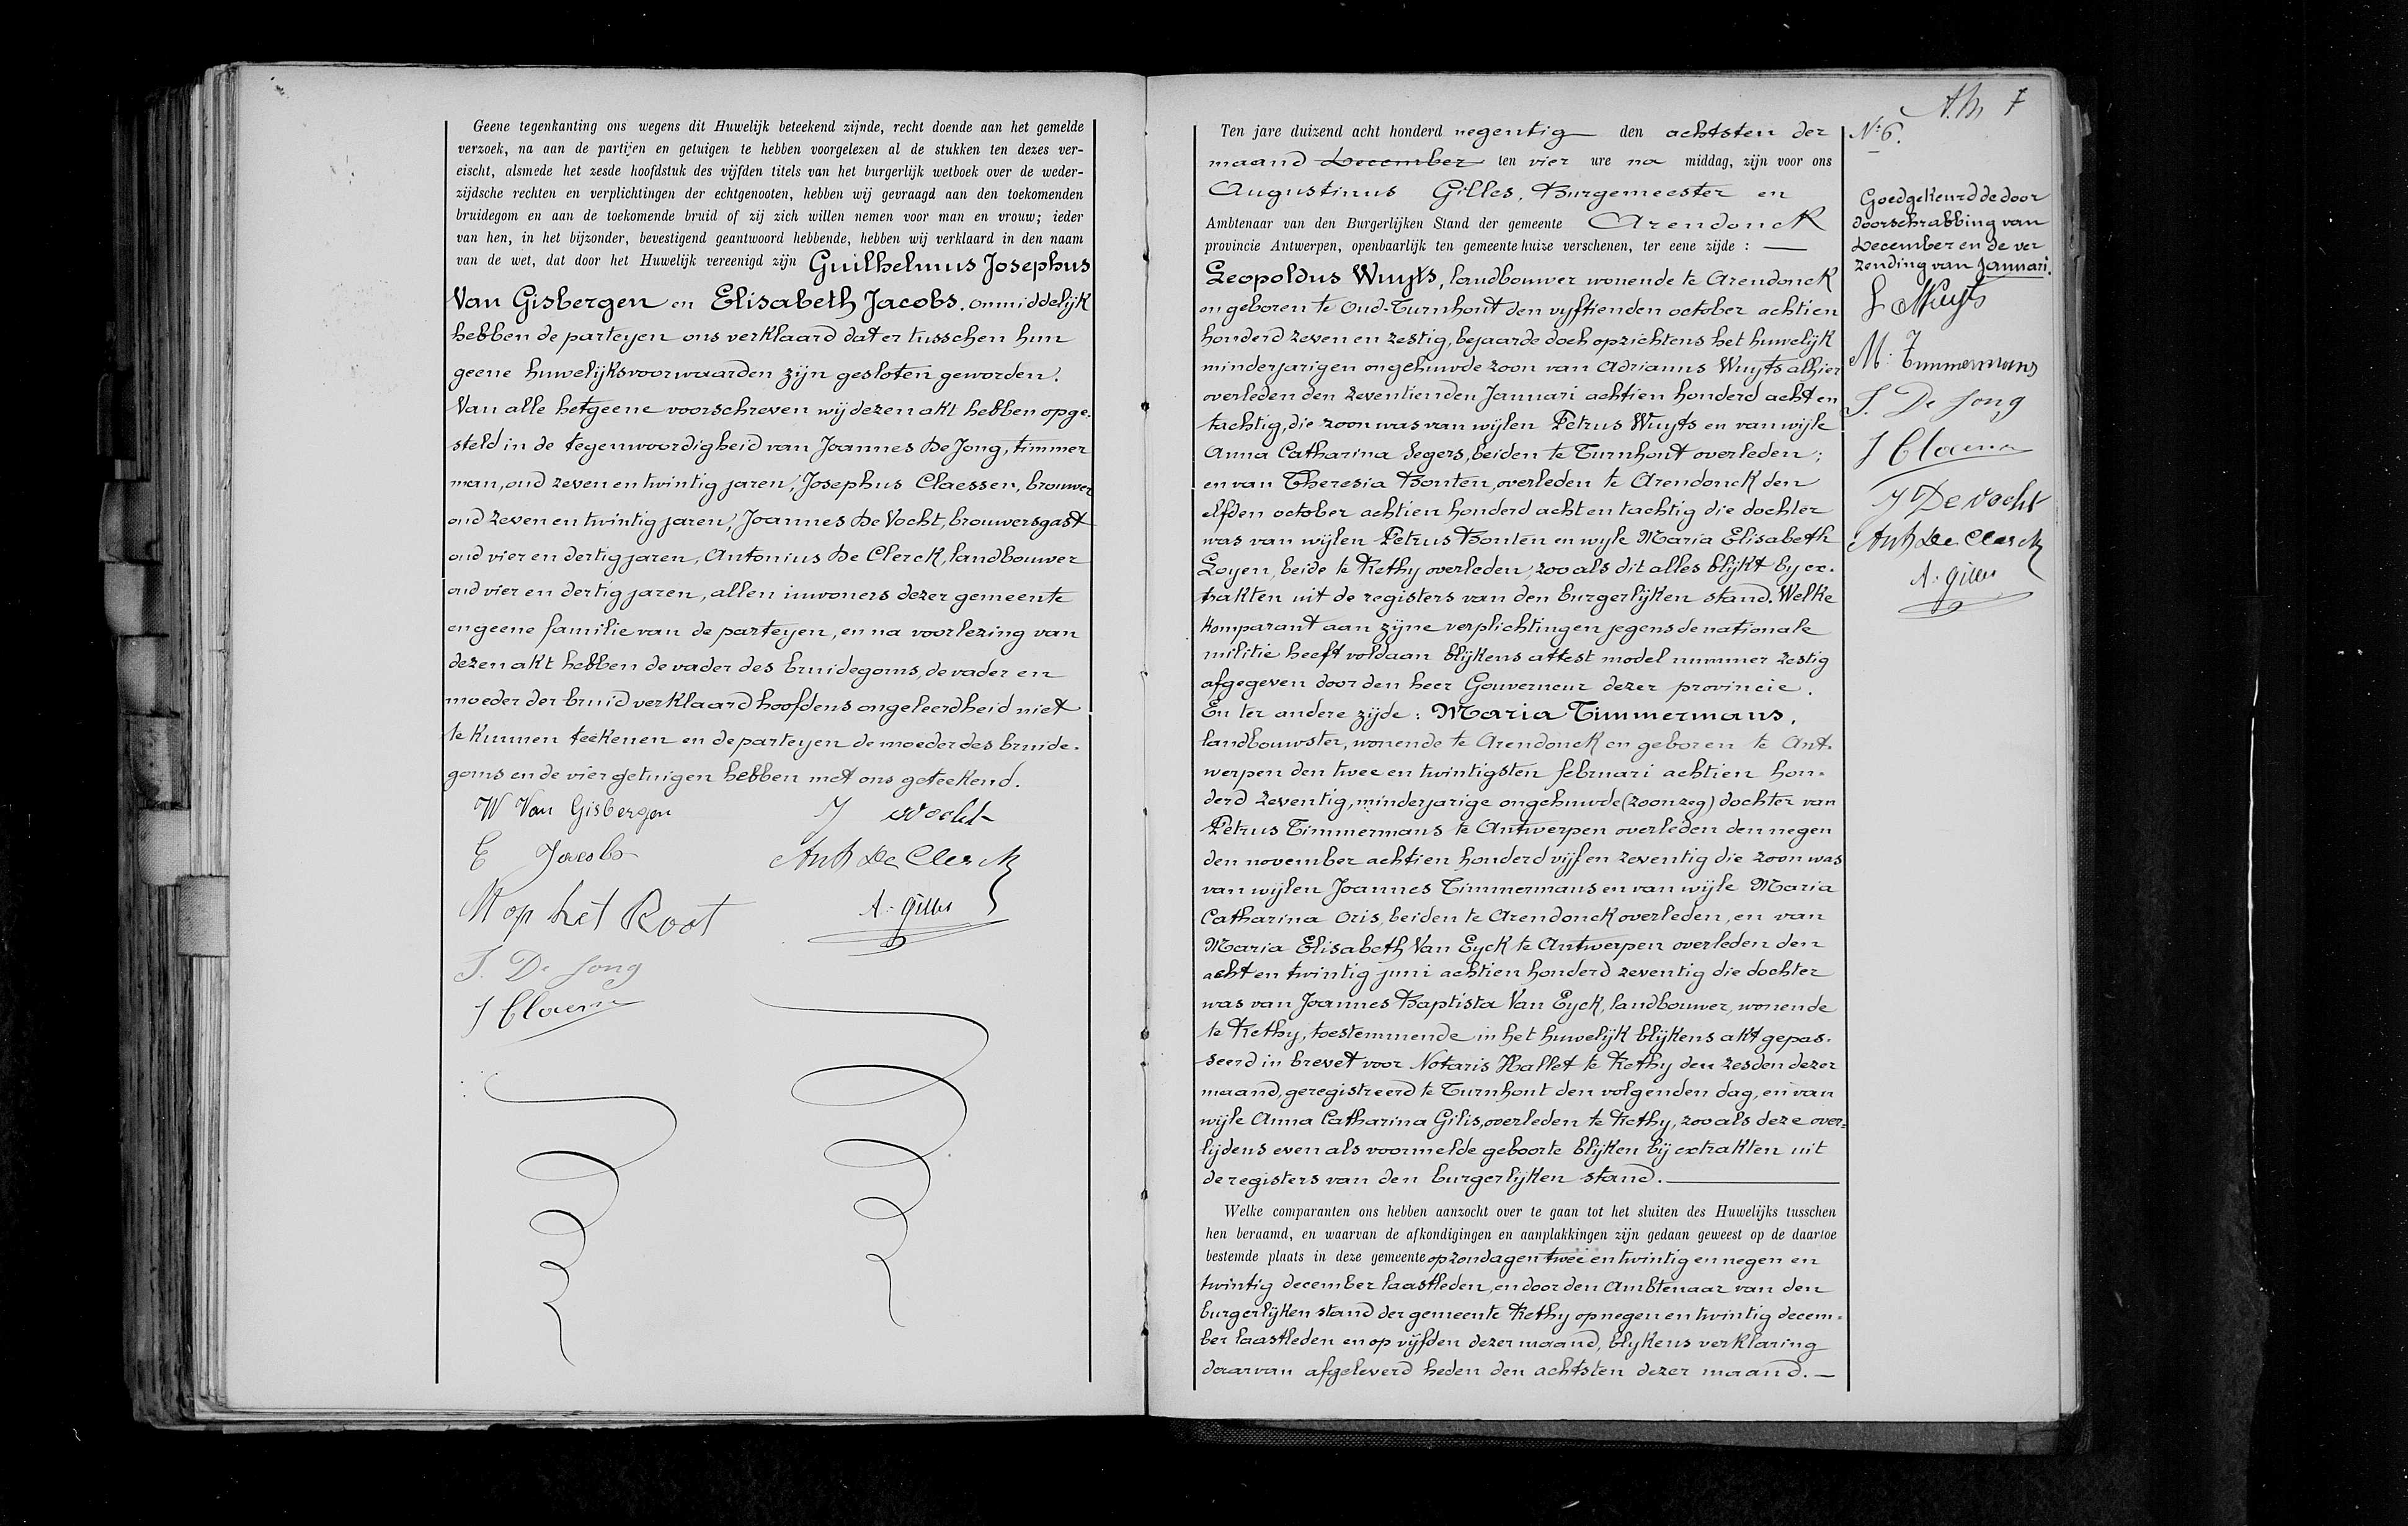 Geene tegenkanting ons wegens dit Huwelijk beteekend zijnde, recht doende aan het gemelde
verzoek, na aan de partijen en getuigen te hebben voorgelezen al de stukken ten dezes ver-
eischt, alsmede het zesde hoofdstuk des vijfden titels van het burgerlijk wetboek over de weder-
zijdsche rechten en verplichtingen der echtgenooten, hebben wij gevraagd aan den toekomenden
bruidegom en aan de toekomende bruid of zij zich willen nemen voor man en vrouw; ieder
van hen, in het bijzonder, bevestigend geantwoord hebbende, hebben wij verklaard in den naam
van de wet, dat door het Huwelijk vereenigd zijn Guilhelmus Josephus
Van Gisbergen en Elisabeth Jacobs. onmiddelijk
hebben de parteyen ons verklaard dat er tusschen hun
geene huwelijksvoorwaarden zijn gesloten geworden.
Van alle hetgeene voorschreven wij dezen akt hebben opge-
steld in de tegenwoordigheid van Joannes De Jong, timmer
man, oud zeven en twintig jaren, Josephus Claessen, brouwer
oud zeven en twintig jaren, Joannes De Vocht, brouwersgast
oud vier en dertig jaren, Antonius De Clerck, landbouwer
oud vier en dertig jaren, allen inwoners dezer gemeente
en geene familie van de parteyen, en na voorlezing van
dezen akt hebben de vader des bruidegoms, de vader en
moeder der bruid verklaard hoofdens ongeleerdheid niet
te kunnen teekenen en de parteyen de moeder des bruide-
goms en de vier getuigen hebben met ons geteekend.
W Van Gisbergen
J Vocht
E Jacobs
Ant De Clerck
M op het Root
A. Gilles
J. De Jong
J Claessen
A. G. 7
Ten jare duizend acht honderd negentig den achtsten der
maand December ten vier ure na middag, zijn voor ons
Augustinus Gilles, Burgemeester en
Ambtenaar van den Burgerlijken Stand der gemeente Arendonck
provincie Antwerpen, openbaarlijk ten gemeentehuize verschenen, ter eene zijde :
Leopoldus Wuyts, landbouwer wonende te Arendonck
en geboren te Oud-Turnhout den vyftienden october achtien
honderd zeven en zestig, bejaarde doch opzichtens het huwelijk
minderjarigen ongehuwde zoon van Adrianus Wuyts alhier
overleden den zeventienden Januari achtien honderd acht en
tachtig, die zoon was van wijlen Petrus Wuyts en van wijle
Anna Catharina Segers, beiden te Turnhout overleden;
en van Theresia Bonten, overleden te Arendonck den
elfden october achtien honderd acht en tachtig die dochter
was van wijlen Petrus Bonten en wyle Maria Elisabeth
Loyen, beide te Rethy overleden, zoo als dit alles blijkt by ex-
trakten uit de registers van den burgerlijken stand. Welke
komparant aan zijne verplichtingen jegens de nationale
militie heeft voldaan blijkens attest model nummer zestig
afgegeven door den heer Gouverneur dezer provincie.
En ter andere zijde : Maria Timmermans,
landbouwster, wonende te Arendonck en geboren te Ant-
werpen den twee en twintigsten februari achtien hon-
derd zeventig, minderjarige ongehuwde (zoon zeg) dochter van
Petrus Timmermans te Antwerpen overleden den negen
den november achtien honderd vijf en zeventig die zoon was
van wijlen Joannes Timmermans en van wijle Maria
Catharina Oris, beiden te Arendonck overleden, en van
Maria Elisabeth Van Eyck te Antwerpen overleden den
acht en twintig juni achtien honderd zeventig die dochter
was van Joannes Baptista Van Eyck, landbouwer, wonende
te Rethy, toestemmende in het huwelijk blijkens akt gepas-
seerd in brevet voor Notaris Hallet te Rethy den zesden dezer
maand, geregistreerd te Turnhout den volgenden dag, en van
wijle Anna Catharina Gilis, overleden te Rethy, zoo als deze over-
lijdens even als voormelde geboorte blijken bij extrakten uit
de registers van den burgerlijken stand.
Welke comparanten ons hebben aanzocht over te gaan tot het sluiten des Huwelijks tusschen
hen beraamd, en waarvan de afkondigingen en aanplakkingen zijn gedaan geweest op de daartoe
bestemde plaats in deze gemeente op zondagen twee en twintig en negen en
twintig december laastleden, en door den Ambtenaar van den
burgerlijken stand der gemeente Rethy op negen en twintig decem-
ber laastleden en op vijfden dezer maand, blykens verklaring
daarvan afgeleverd heden den achtsten dezer maand.
N: 6.
Goedgekeurd de door
doorschrabbing van
December en de ver
zending van Januari.
L Wuyts
M. Timmermans
J. De Jong
J Claessen
J De Vocht
Ant De Clerck
A. Gilles